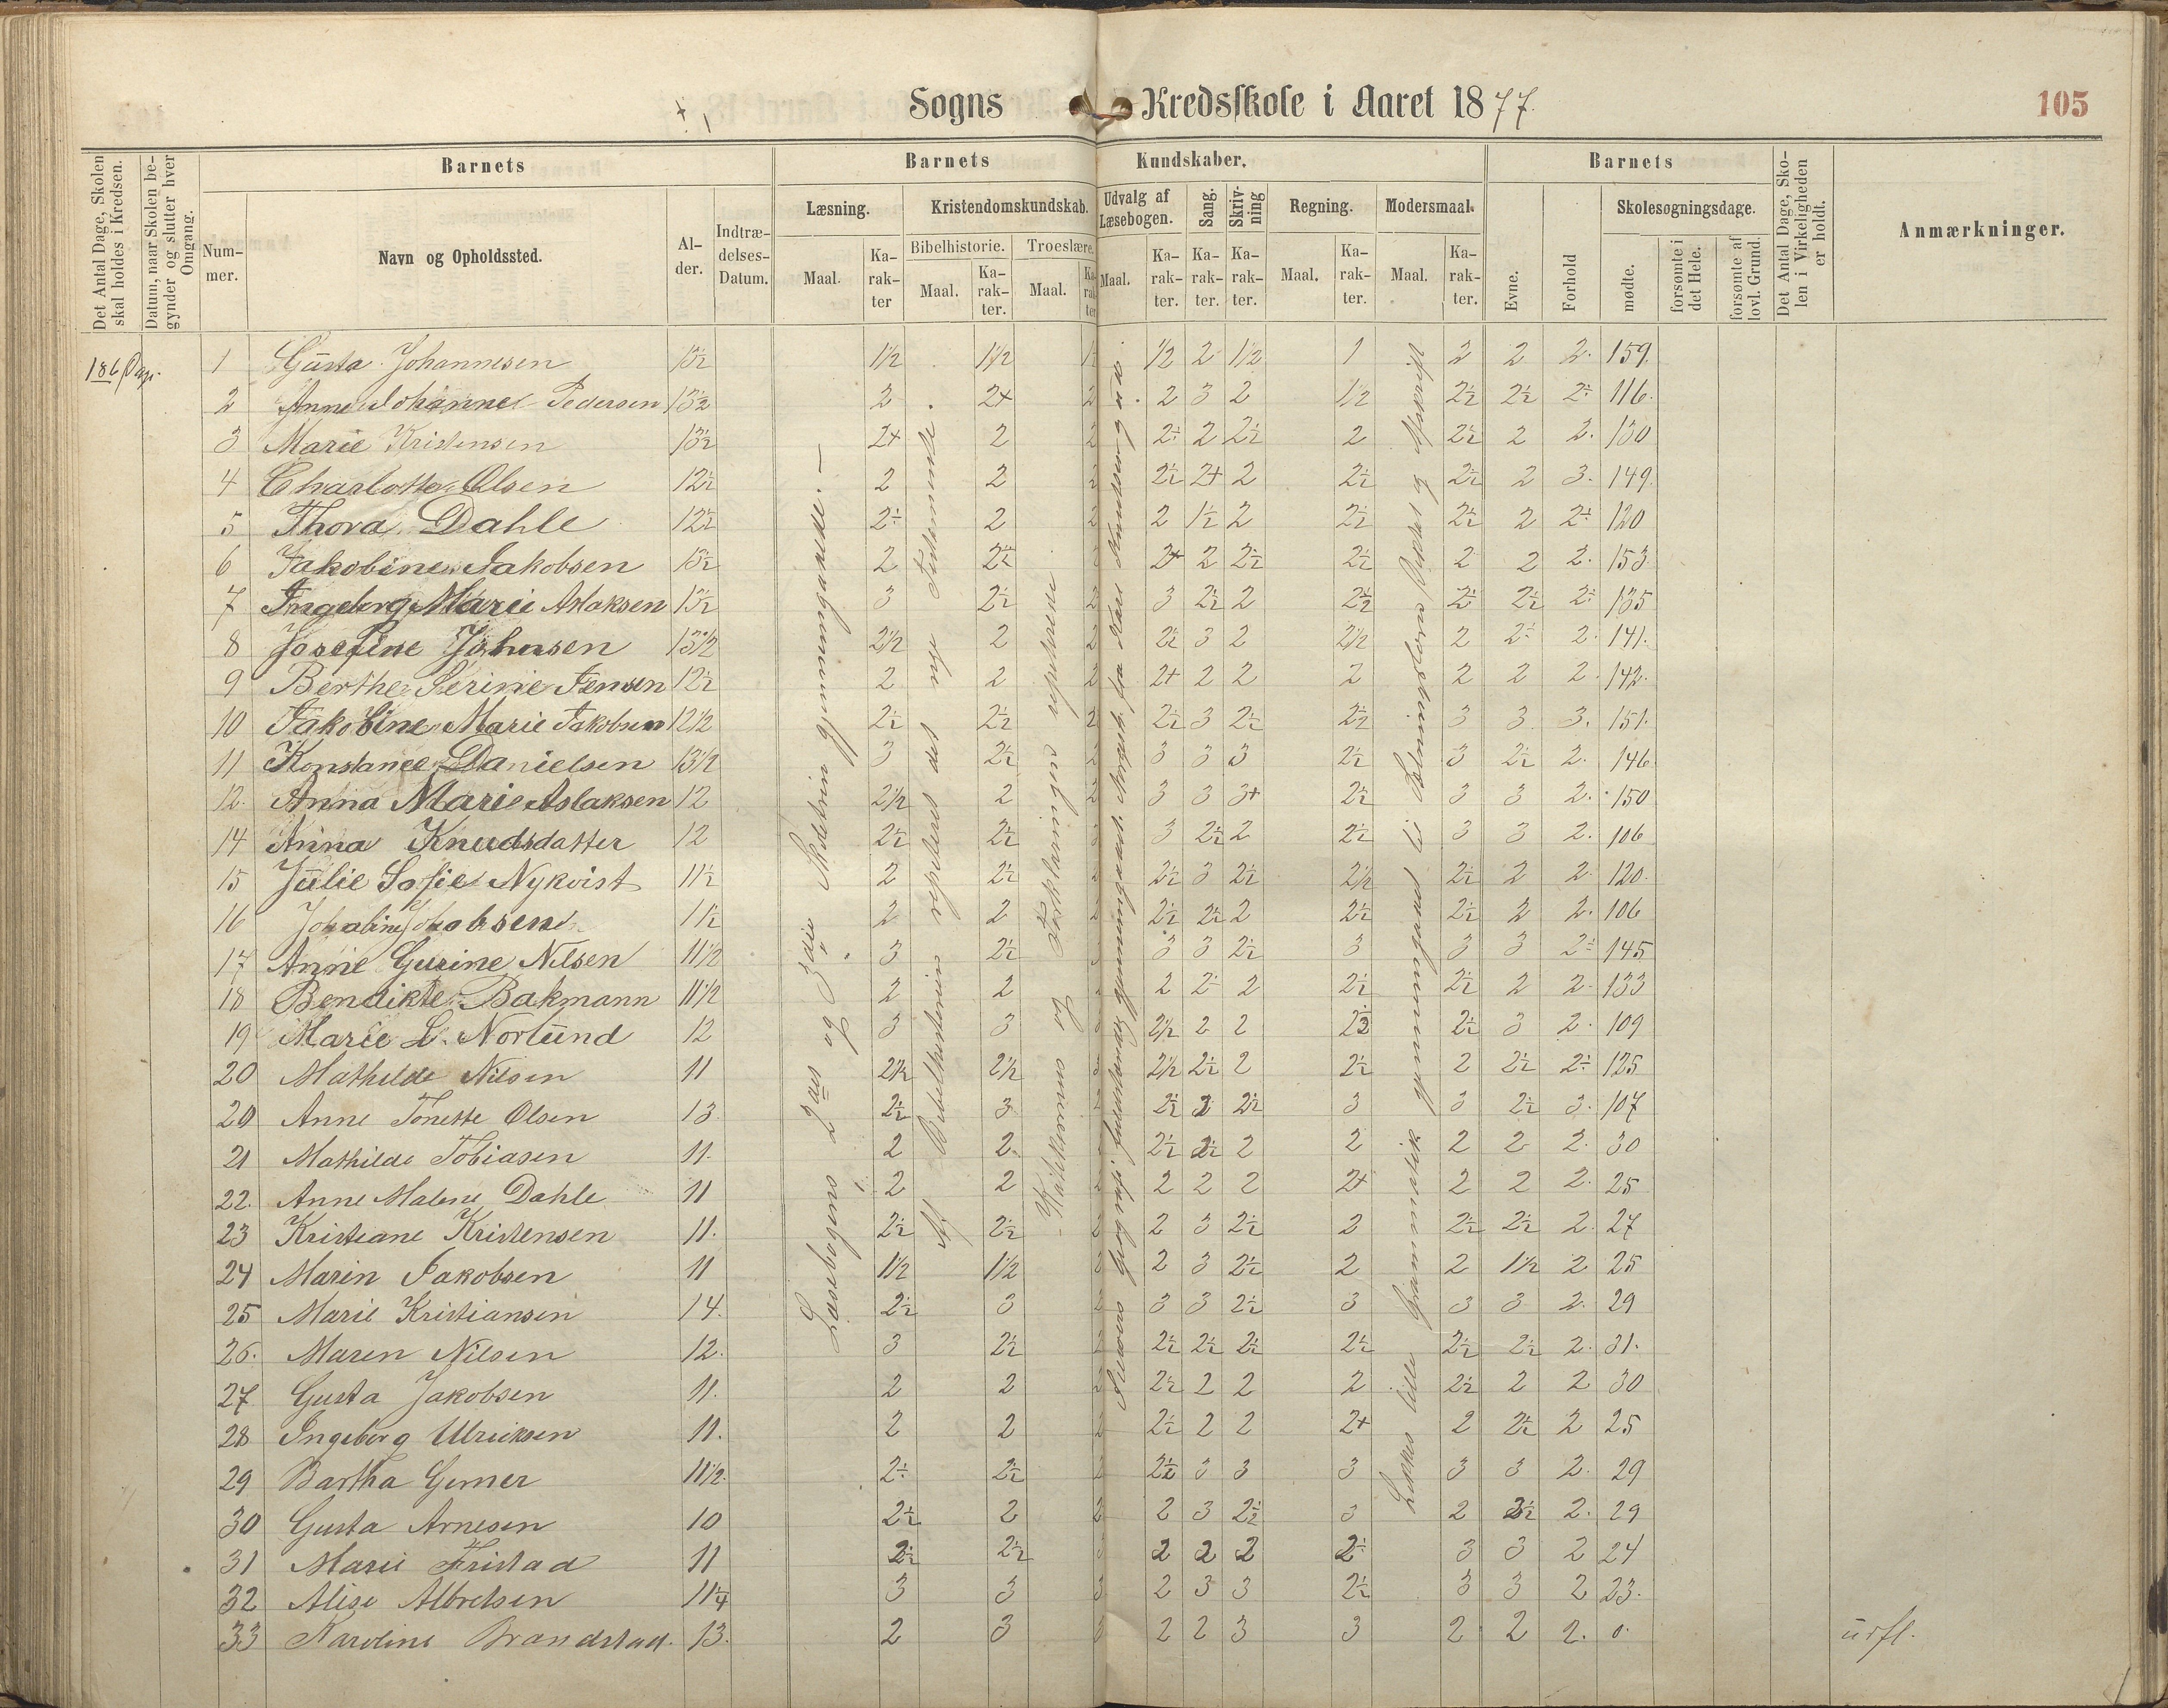 Sogns Kredsskole i Aaret 1877.
105
Det Antal Dage, Skolen skal holdes i Kredsen.
Datum, naar Skolen begynder og slutter hver Omgang.
Barnets
Nummer.
Navn og Opholdssted.
Alder.
Indtrædelses-Datum.
Barnets Kundskaber.
Læsning.
Maal.
Karakter
Kristendomskundskab.
Bibelhistorie.
Maal.
Karakter.
Troeslære.
Maal.
Karakter
Udvalg af Læsebogen.
Maal.
Karakter.
Sang.
Karakter.
Skrivning
Karakter.
Regning.
Maal.
Karakter.
Modersmaal.
Maal.
Karakter.
Barnets
Evne.
Forhold
Skolesøgningsdage.
mødte.
forsømte i det Hele.
forsømte af lovl. Grund.
Det Antal Dage, Skolen i Virkeligheden er holdt.
Anmærkninger.
186 Dage.
Læsebogens 2det og 3die Skoletrin gjennemgaaede.
Af Bibelhistorien repeteret det nye Testamente
Katekismus og Forklaringen repeteres
1 Gusta Johannesen 13½ 1½ 1½ 1½ 1½ 2 1½ 1 2 2 2. 159.
2 Anne Johanne Pedersen 13½ 2 2+ 2 2 3 2 1½ 2½ 2½ 2÷ 116.
3 Marie Kristensen 13½ 2+ 2 2 2÷ 2 2½ 2 2½ 2 2. 130
4 Charlotte Olsen 12½ 2 2 2 2½ 2+ 2 2½ 2½ 2 3. 149.
5 Thora Dahle 12½ 2÷ 2 2 2 1½ 2 2½ 2½ 2 2÷ 120
6 Jakobine Jakobsen 13½ 2 2½ 2+ 2 2½ 2½ 2 2 2. 153
7 Ingeborg Marie Aslaksen 13½ 3 2½ 2 3 2½ 2 2½ 2½ 2½ 2÷ 135
8 Josefine Johnsen 13½ 2½ 2 2 2½ 3 2 2½ 2 2÷ 2. 141.
9 Berthe Serine Jensen 12½ 2 2 2 2+ 2 2 2 2 2 2 142.
10 Jakobine Marie Jakobsen 12½ 2½ 2½ 2 2½ 3 2½ 2½ 3 3 3. 151.
11 Konstance Danielsen 13½ 3 2½ 2 3 3 3 2½ 3 2½ 2. 146
12. Anna Marie Aslaksen 12 2½ 2 2 3 3 3+ 2½ 3 3 2. 150
14 Anna Knudsdatter 12 2½ 2½ 3 3 2½ 2 2½ 3 3 2. 106
15 Julie Sofie Nykvist 11½ 2 2½ 2½ 3 2½ 2½ 2½ 2 2 120.
16 11½ 2 2 2½ 2½ 2 2½ 2½ 2 2. 106
17 Anne Gurine Nilsen 11½ 3 2½ 3 3 2½ 3 3 3 2÷ 145
18 Bendikte Bakmann 11½ 2 2 2 2÷ 2 2½ 2½ 2 2 133
19 Marie L. Norlund 12 3 3 2½ 2 2 2½ 2½ 3 2. 109
20 Mathilde Nilsen 11 2½ 2½ 2½ 2½ 2 2½ 2 2½ 2÷ 125
20 Anne Tonette Olsen 13. 2½ 3 2½ 2 2½ 3 3 2½ 3. 107
21 Mathilde Tobiasen 11. 2 2. 2½ 2½ 2 2 2 2 2. 30
22. Anne Malene Dahle 11 2 2 2 2 2 2+ 2 2 2. 25
23 Kristiane Kristensen 11. 2½ 2½ 2 2 3 2½ 2 2½ 2½ 2. 27
24 Marin Jakobsen 11 1½ 1½ 2 2 3 2½ 2 2 1½ 2 25
25 Marie Kristiansen 14. 2½ 3 2 3 3 2½ 3 3 3 2. 29
26. Maren Nilsen 12. 3 2½ 2 2½ 2½ 2½ 2½ 2½ 2½ 2. 31.
27 Gusta Jakobsen 11. 2 2 2 2½ 2 2 2 2½ 2 2 30
28 Ingeborg Ulriksen 11. 2 2 2 2½ 2 2 2+ 2 2½ 2 25
29 Bartha Gemer 11½. 2÷ 2½ 2 2½ 3 3 3 3 3 2. 29
30 Gusta Arnesen 10 2½ 2 2 2 3 2½ 3 2 3½ 2. 29
31 Marie Fristad 11 2½ 2½ 3 2 2 2 2÷ 3 3 2 24
32 Alise Albretsen 11¼ 3 3 3 2 3 3 2½ 3 3 2 23.
33 Karoline Brandstad. 13. 2 3 3 2 2 3 3 2 2 2. 0. urfl.